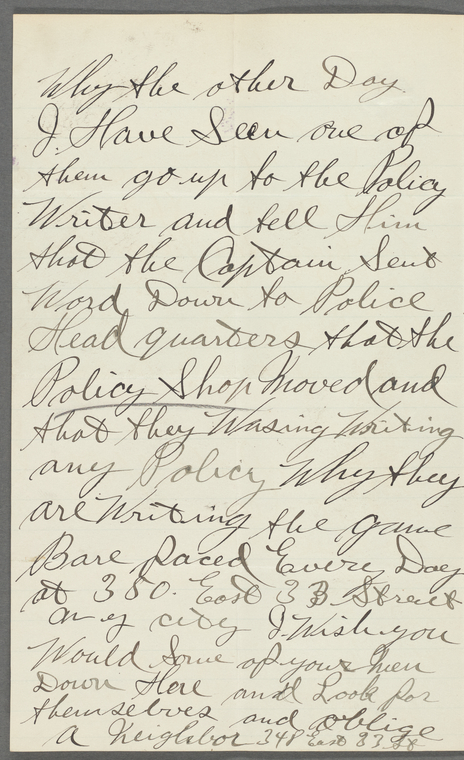 Why the other Day
I. Have Seen one of
them go up to the Policy
Writer and tell Him
that the Captain Sent
Word Down to Police
Head quarters that the
Policy Shop Moved and
that they Wasing Writing
any Policy Why they
are Writing the game
Bare faced Every Day
at 350. East 33 Street
N Y city I. Wish you
Would Some of your Men
Down Here and Look for
themselves and oblige
A Neighbor 348 East 33 St